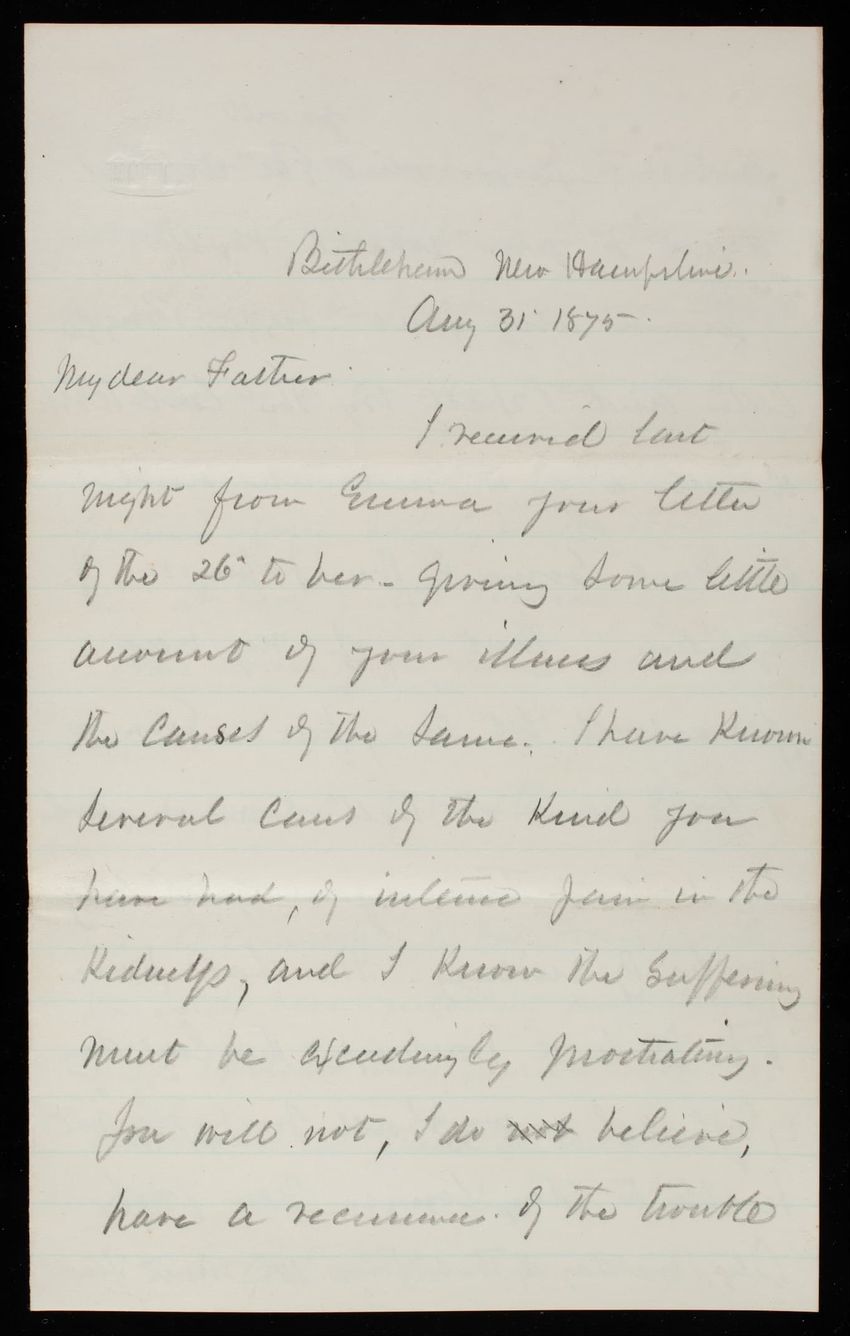 Bethlehem New Hampshire.
Aug 31 1875.
My dear Father.
I received last
night from Emma your letter
of the 26" to her - giving some little
account of your illness and
the causes of the same. I have known
several cases of the kind you
have had, of intense pain in the
Kidneys, and I know the suffering
must be exceedingly prostrating.
You will not, I do not believe,
have a recurrence of the trouble